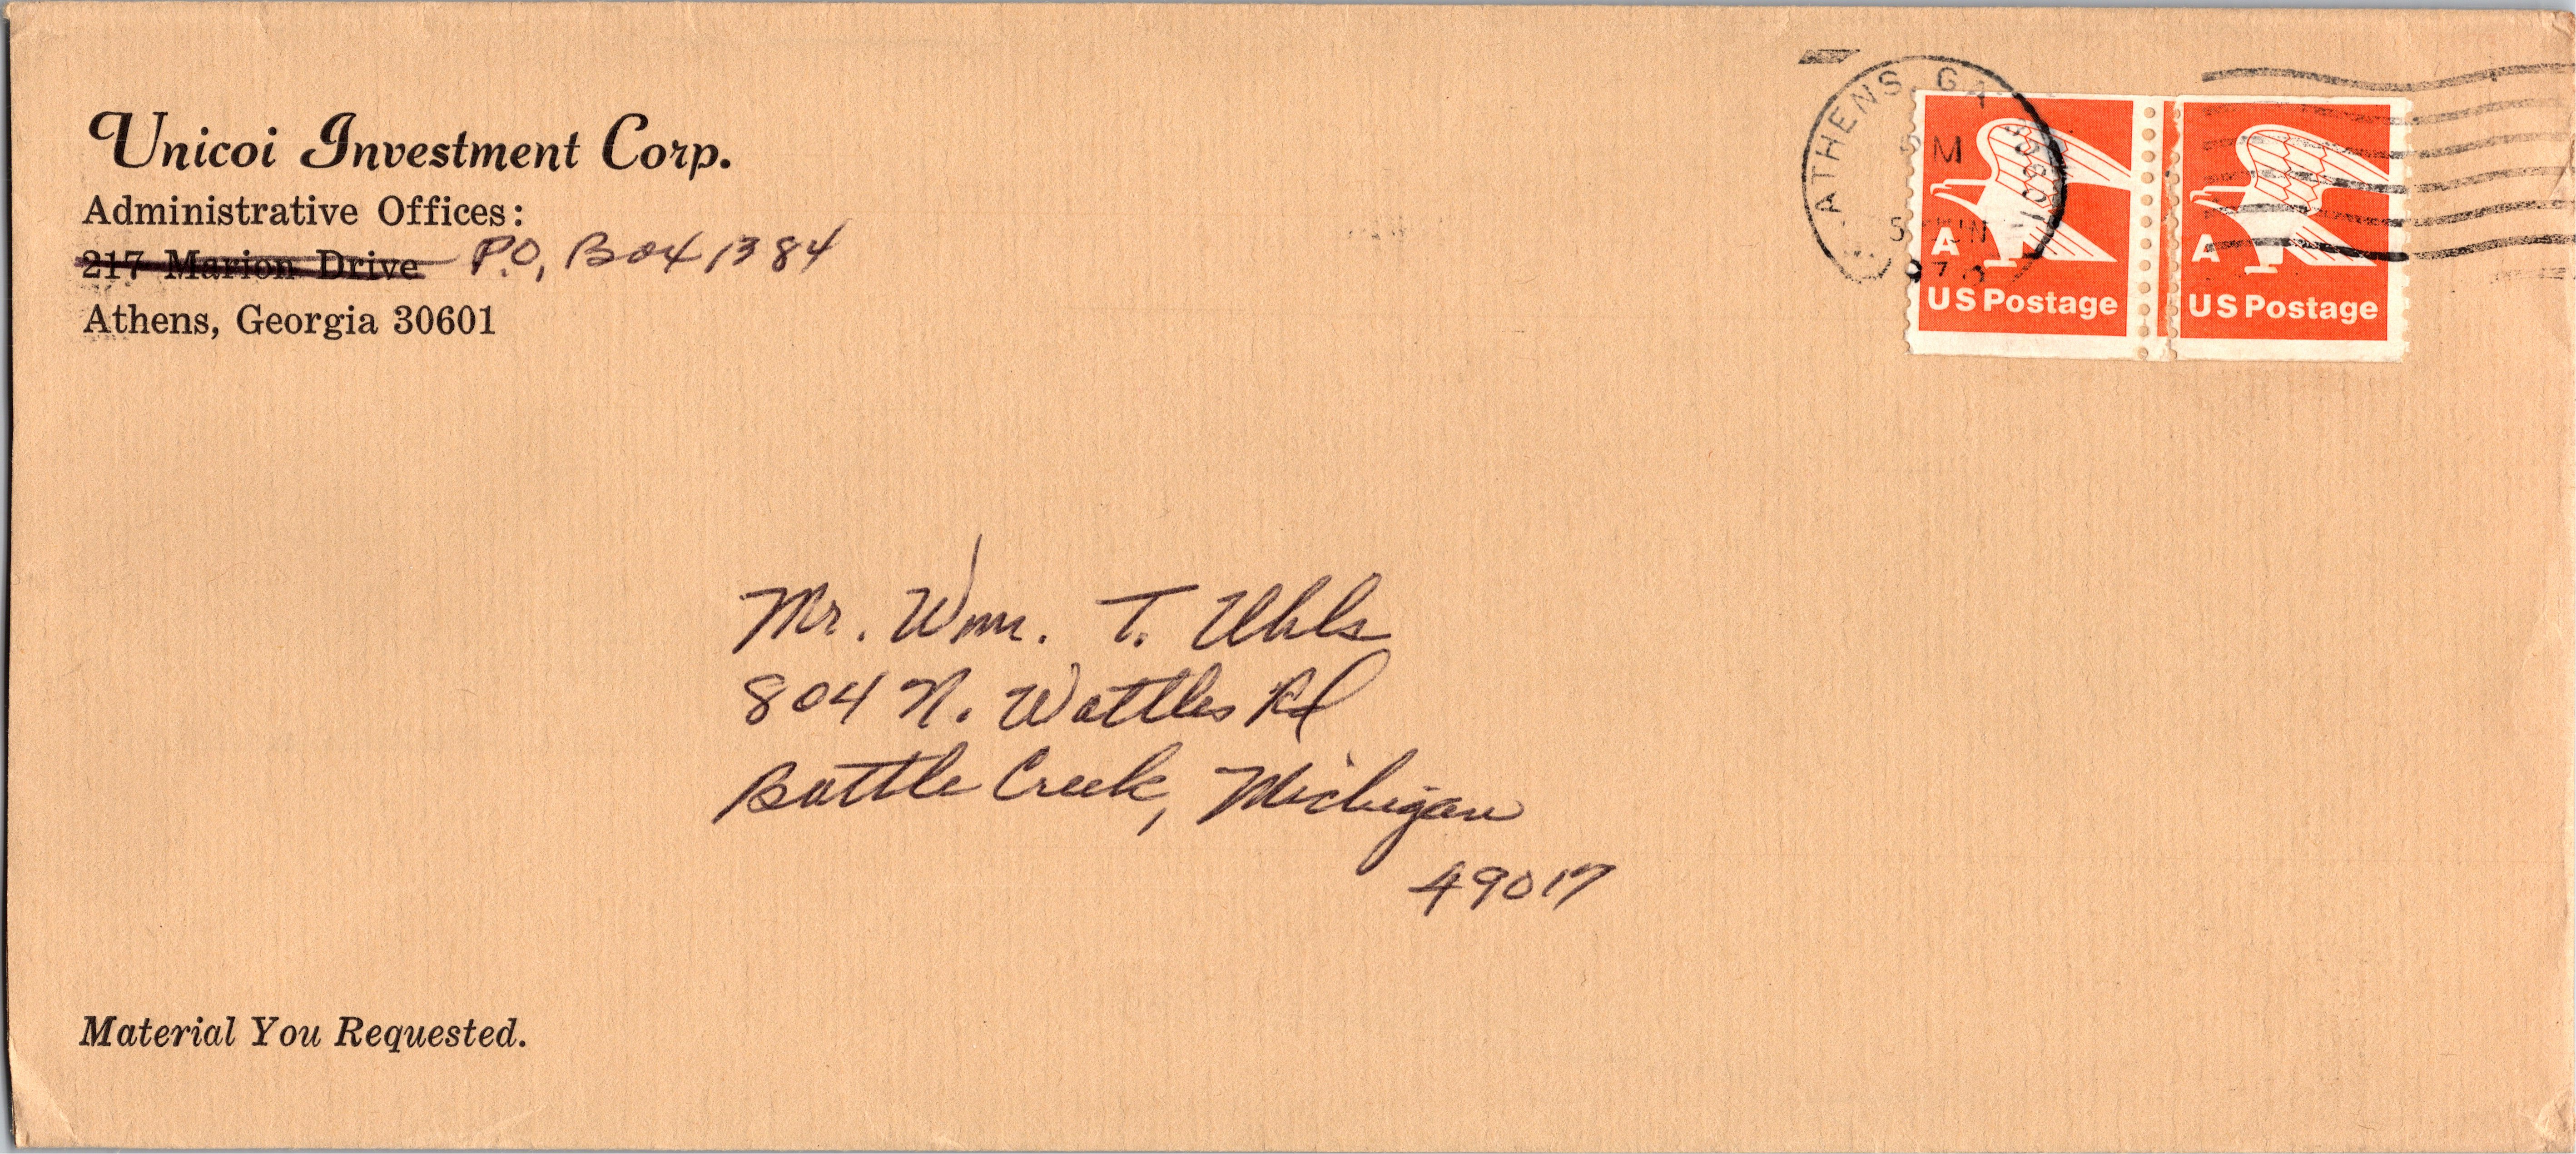 Unicoi Investment Corp.
Administrative Offices:
217 Marion Drive P.O, Box 1384
Athens, Georgia 30601
ATHENS, GA
PM
5 JUN
A
US Postage
A
US Postage
Mr. Wm. T. Uhls
804 N. Wattles Rd
Battle Creek, Michigan
49017
Material You Requested.